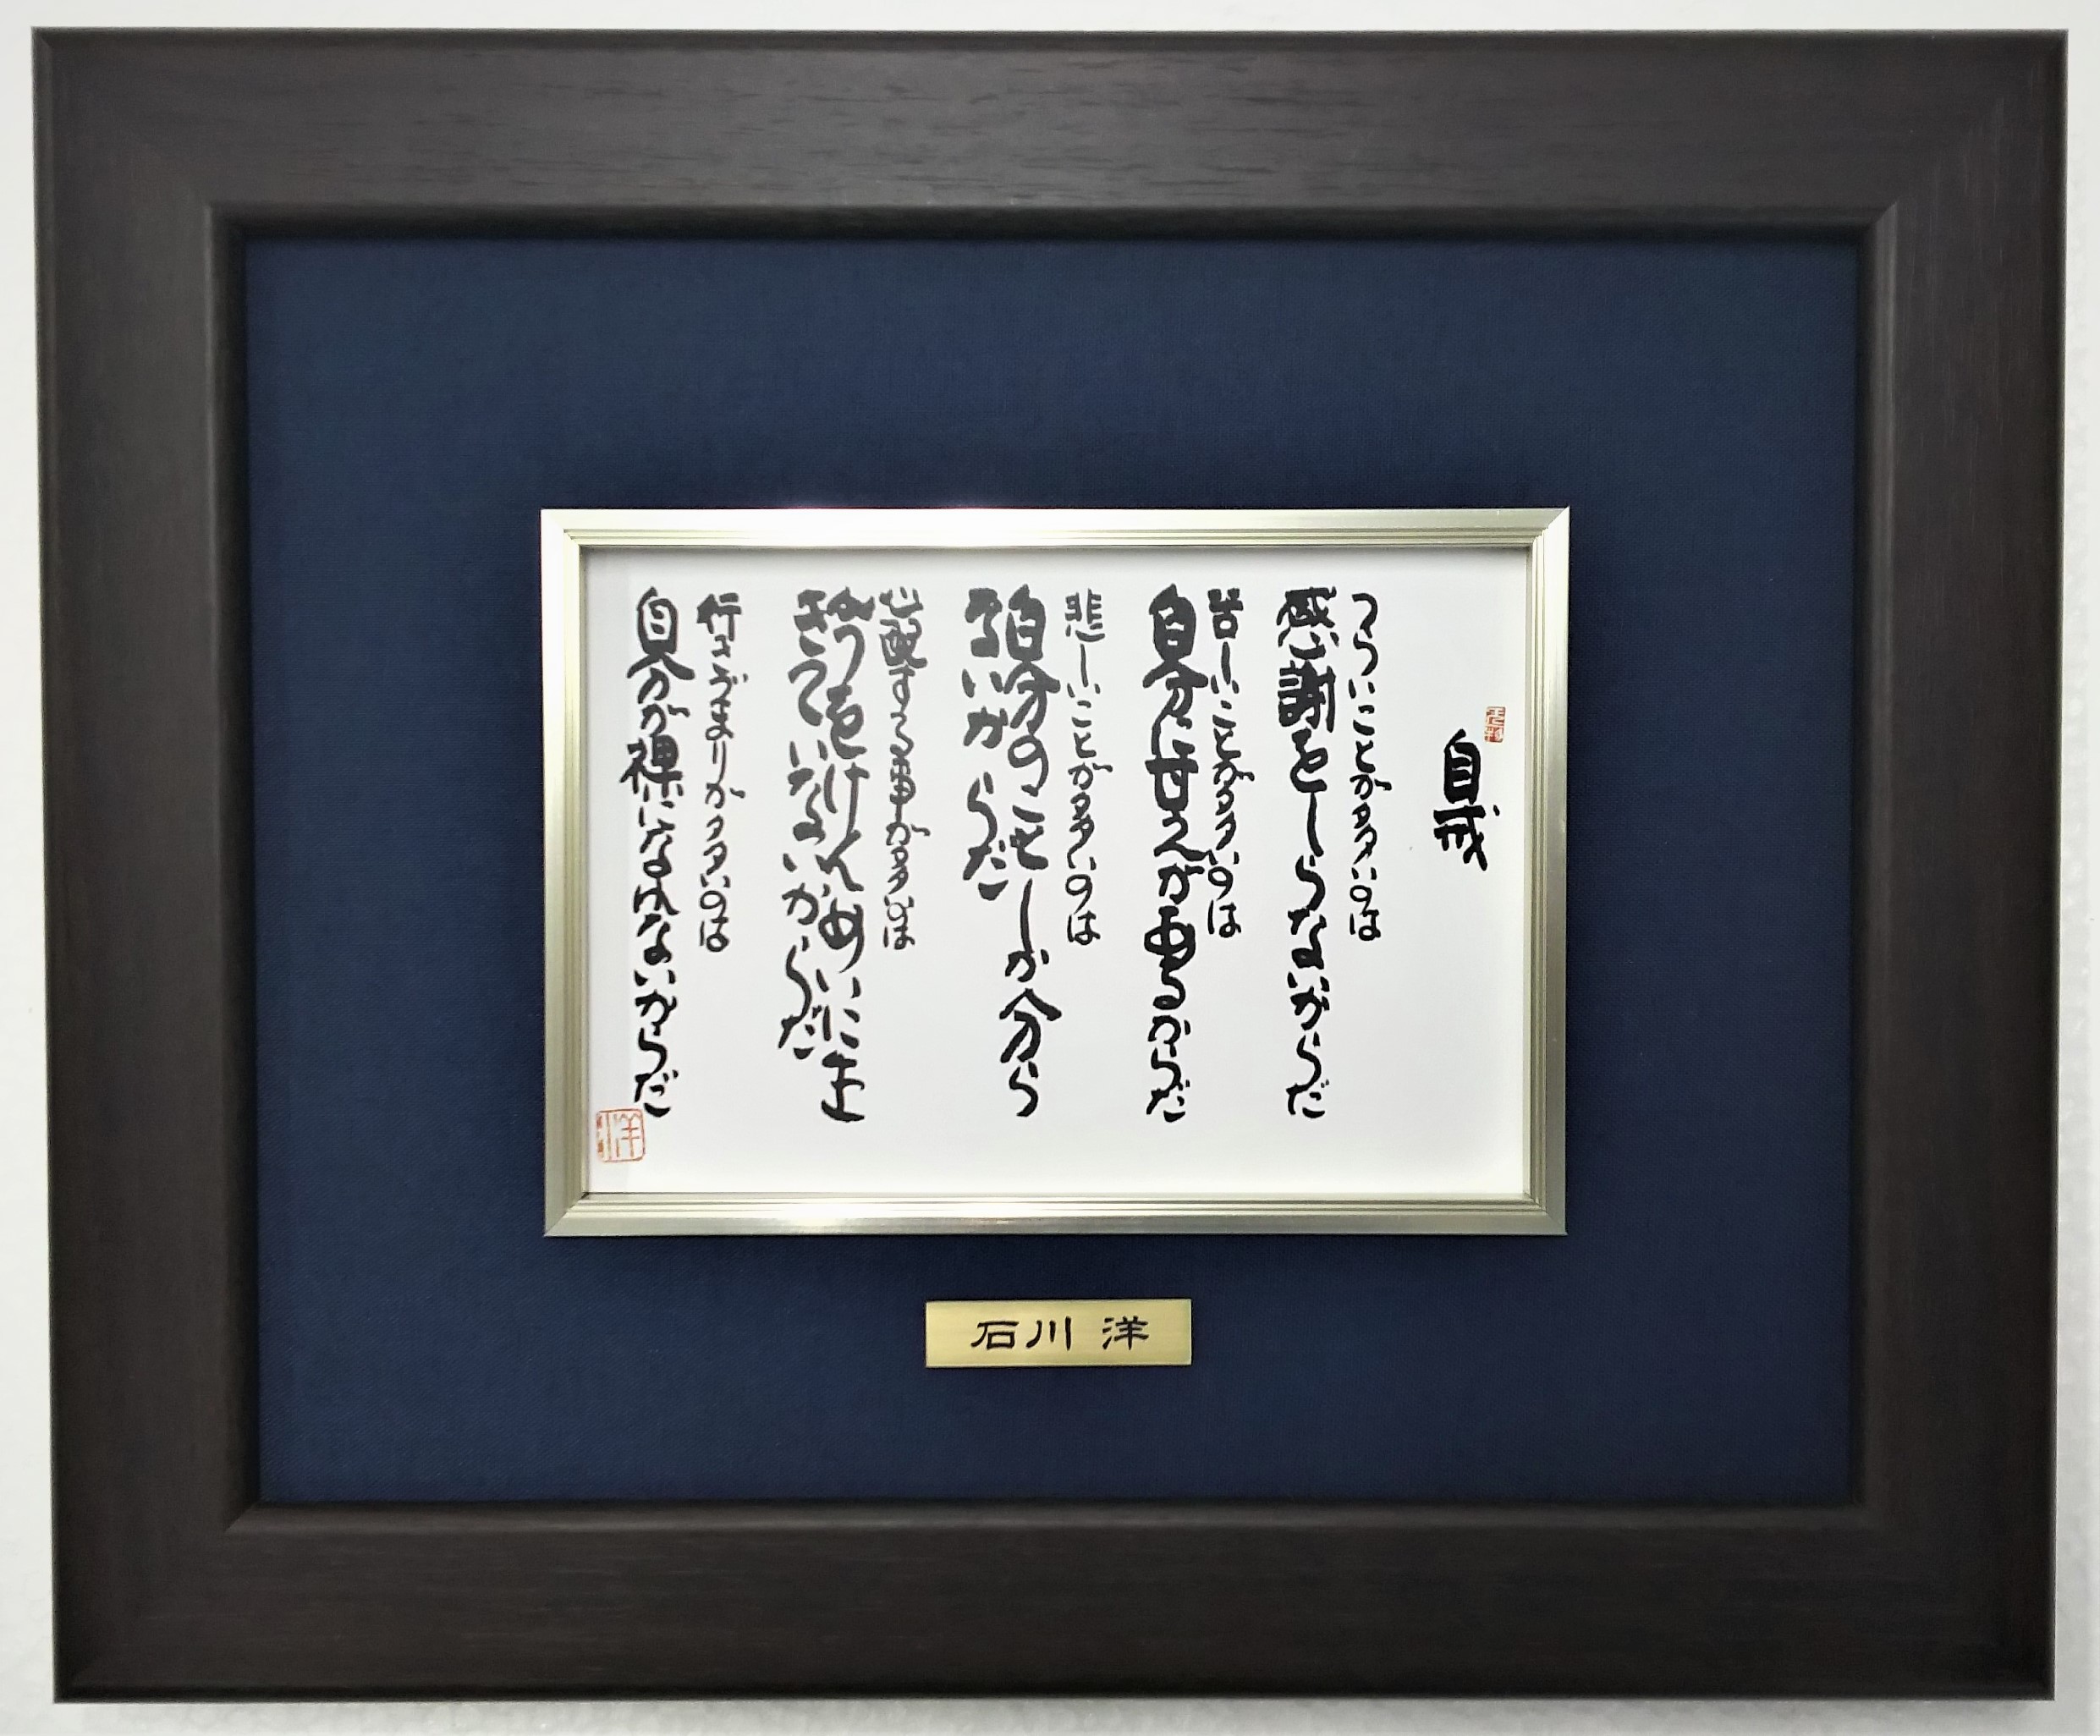 自戒
つらいことが多いのは
感謝をしらないからだ
苦しいことが多いのは
自分に甘えがあるからだ
悲しいことが多いのは
自分のことしか分から
ないからだ
心配する事が多いのは
今をけんめいに生
きていないからだ
行きづまりが多いのは
自分が裸になれないからだ
洋
石川 洋